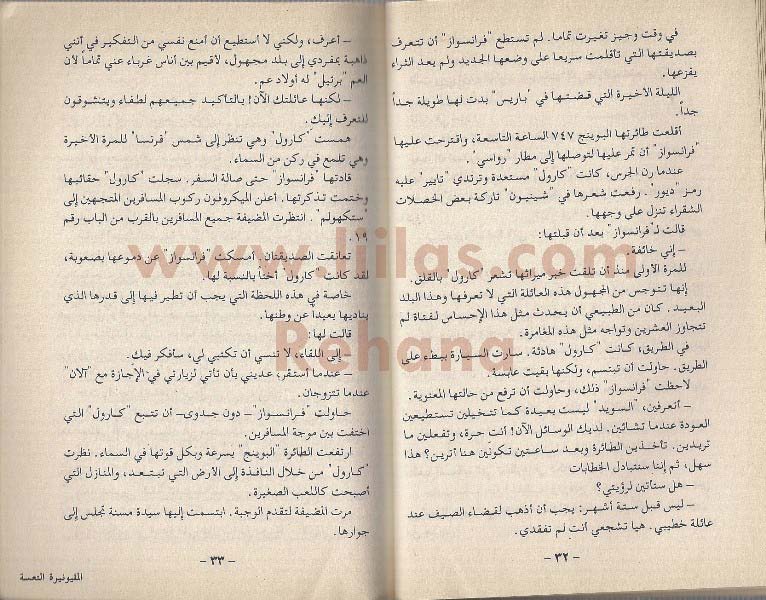 في وقت وجيز تغيرت تماما. لم تستطع "فرانسواز" أن تتعرف
بصديقتها التي تأقلمت سريعا على وضعها الجديد ولم يعد الثراء
يفزعها.
الليلة الأخيرة التي قضتها في "باريس" بدت لها طويلة جداً
جداً.
أقلعت طائرتها البوينج ٧٤٧ الساعة التاسعة، واقترحت عليها
"فرانسواز" أن تمر عليها لتوصلها إلى مطار "رواسي".
عندما رن الجرس، كانت "كارول" مستعدة وترتدي "تايير" عليه
رمز "ديور". رفعت شعرها في "شينيون" تاركة بعض الخصلات
الشقراء تنزل على وجهها.
قالت لـ"فرانسواز" بعد أن قبلتها:
– إني خائفة.
للمرة الأولى منذ أن تلقت خبر ميراثها تشعر "كارول" بالقلق.
إنها تتوجس من المجهول هذه العائلة التي لا تعرفها وهذا البلد
البعيد. كان من الطبيعي أن يحدث مثل هذا الإحساس لفتاة لم
تتجاوز العشرين وتواجه مثل هذه المغامرة.
في الطريق، كانت "كارول" هادئة. سارت السيارة ببطء على
الطريق. حاولت أن تبتسم، ولكنها بقيت عابسة.
لاحظت "فرانسواز" ذلك، وحاولت أن ترفع من حالتها المعنوية.
– أتعرفين، "السويد" ليست بعيدة كما تتخيلين تستطيعين
العودة عندما تشائين. لديك الوسائل الآن! أنت حرة، وتفعلين ما
تريدين. تأخذين الطائرة وبعد ساعتين تكونين هنا أترين؟ هذا
سهل، ثم إننا سنتبادل الخطابات
– هل ستأتين لرؤيتي؟
– ليس قبل ستة أشهر: يجب أن أذهب لقضاء الصيف عند
عائلة خطيبي. هيا تشجعي أنت لم تفقدي.
– ٣٢ –
– أعرف، ولكني لا أستطيع أن أمنع نفسي من التفكير في أنني
ذاهبة بمفردي إلى بلد مجهول، لاقيم بين أناس غرباء عني تماماً لأن
العم "برتيل" له أولاد عم.
– لكنها عائلتك الآن! بالتأكيد جميعهم لطفاء ويتشوقون
للتعرف إليك.
همست "كارول" وهي تنظر إلى شمس "فرنسا" للمرة الأخيرة
وهي تلمع في ركن من السماء.
قادتها "فرانسواز" حتى صالة السفر. سجلت "كارول" حقائبها
وختمت تذكرتها. أعلن الميكروفون ركوب المسافرين المتجهين إلى
"ستكهولم". انتظرت المضيفة جميع المسافرين بالقرب من الباب رقم
١٩.
تعانقت الصديقتان. أمسكت "فرانسواز" عن دموعها بصعوبة،
لقد كانت "كارول" أختاً بالنسبة لها.
خاصة في هذه اللحظة التي يجب أن تطير فيها إلى قدرها الذي
يناديها بعيداً عن وطنها.
قالت لها:
– إلى اللقاء، لا تنسي أن تكتبي لي، سأفكر فيك.
– عندما أستقر، عديني بأن تأتي لزيارتي في الإجازة مع "آلان"
عندما تتزوجان.
حاولت "فرانسواز" – دون جدوى – أن تتبع "كارول" التي
اختفت بين موجة المسافرين.
ارتفعت الطائرة "البوينج" بسرعة وبكل قوتها في السماء. نظرت
"كارول" من خلال النافذة إلى الأرض التي تبتعد، والمنازل التي
أصبحت كاللعب الصغيرة.
مرت المضيفة لتقدم الوجبة. ابتسمت إليها سيدة مسنة تجلس إلى
جوارها.
– ٣٣ –
المليونيرة التعسة
www.liilas.com
Rehana